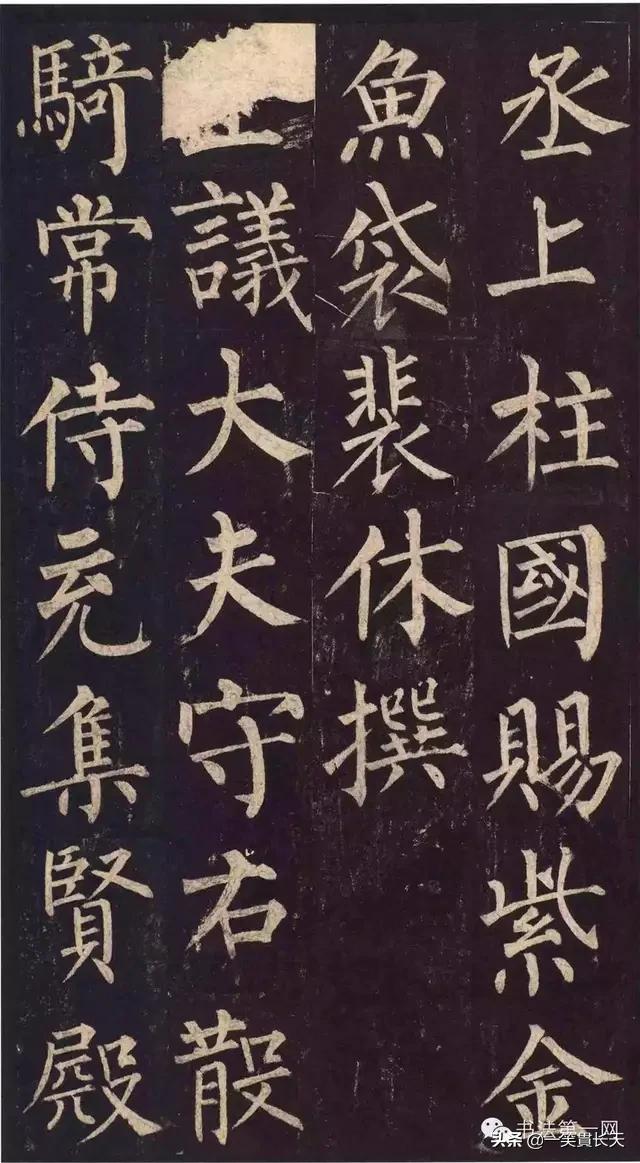 丞上柱國賜紫金
魚袋裴休撰
議大夫守右散
騎常侍充集賢殿
书法第一网
头条@一笑貫长天